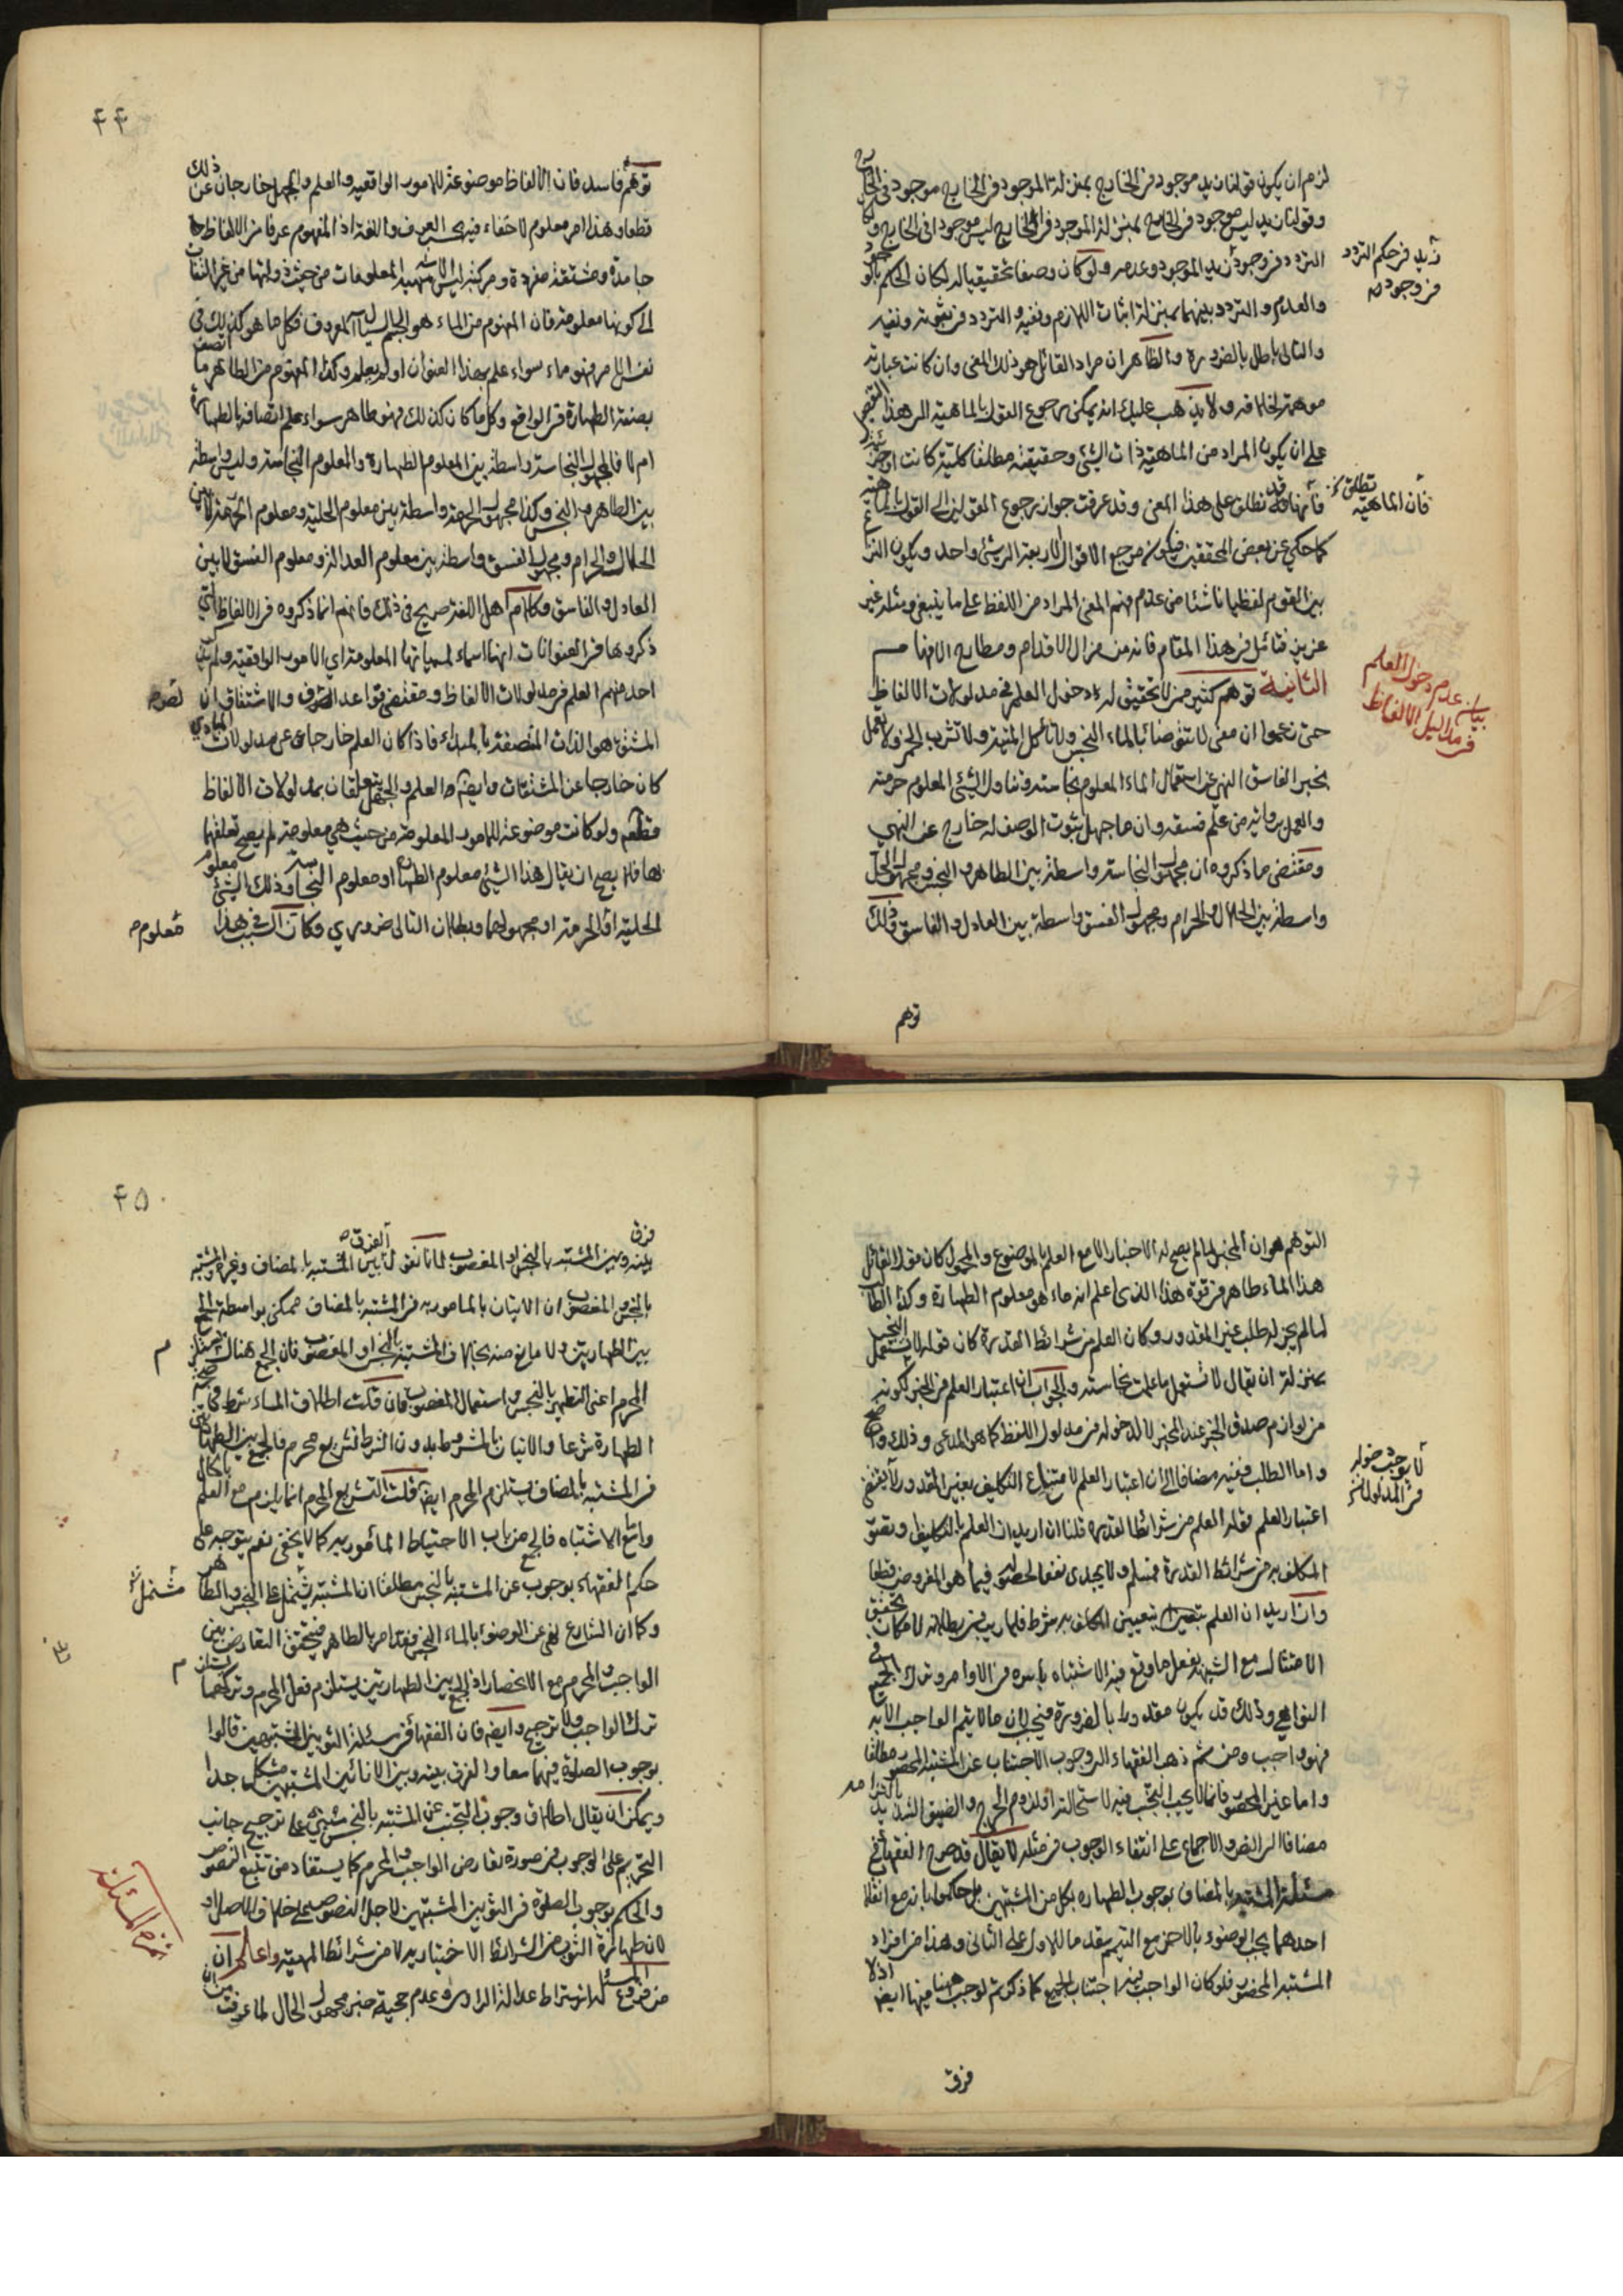 لزم ان يكون قولنا زيد موجود في الخارج بمنزلة الموجود في الخارج موجود في الخارج
وقولنا زيد ليس موجود في الخارج بمنزلة الموجود في الخارج ليس موجودا في الخارج وكان
التردد في وجود زيد الموجود وعدمه ولو كان وصفا تحقيقيا له لكان الحكم بالوجود
زيد في حكم التردد
في وجوده
والعدم والتردد بينهما بمنزلة اثبات اللازم ونفيه والتردد في ثبوته ونفيه
والتالي باطل بالضرورة والظاهر ان مراد القائل هو ذلك المعنى وان كانت عبارته
موهمة لخلافه ولا يذهب عليك انه يمكن رجوع القول بالماهية الى هذا القول
على ان يكون المراد من الماهية ذات الشيء وحقيقته مطلقا كلية كانت او جزئية
فانها قد تطلق على هذا المعنى وقد عرفت جواز رجوع القولين الى القول بالماهية
فان الماهية تطلق
كما حكي عن بعض المحققين فيكون مرجع الاقوال الاربعة الى شيء واحد ويكون النزاع
بين القوم لفظيا ناشئا من عدم فهم المعنى المراد من اللفظ على ما ينبغي ومثله غير
عزيز فتأمل في هذا المقام فانه من مزال الاقدام ومطارح الافهام
الثانية توهم كثير ممن لا تحقيق له دخول العلم في مدلولات الالفاظ
بيان عدم دخول العلم
في مداليل الالفاظ
حتى زعموا ان معنى لا تتوضأ بالماء النجس ولا تأكل الميتة ولا تشرب الخمر ولا تعمل
بخبر الفاسق النهي عن استعمال الماء المعلوم نجاسته وتناول الشيء المعلوم حرمته
والعمل برواية من علم فسقه وان ما جهل ثبوت الوصف له خارج عن النهي
ومقتضى ما ذكروه ان مجهول النجاسة واسطة بين الطاهر والنجس ومجهول الحل
واسطة بين الحلال والحرام ومجهول الفسق واسطة بين العادل والفاسق وذلك
توهم
۴۴
توهم فاسد فان الالفاظ موضوعة للامور الواقعية والعلم والجهل خارجان عن ذلك
قطعا وهذا امر معلوم لا خفاء فيه بحسب العرف واللغة اذ المفهوم عرفا من الالفاظ
جامدة ومشتقة مفردة ومركبة ليس الا المعلومات من حيث ذواتها من غير التفات
الى كونها معلومة فان المفهوم من الماء هو الجسم السيال المعروف فكل ما هو كذلك في
نفس الامر فهو ماء سواء علم بهذا العنوان او لم يعلم وكذا المفهوم من الطاهر ما اتصف
بصفة الطهارة في الواقع وكل ما كان كذلك فهو طاهر سواء علم اتصافه بالطهارة
ام لا فالمجهول النجاسة واسطة بين المعلوم الطهارة والمعلوم النجاسة وليس واسطة
بين الطاهر والنجس وكذا مجهول الحرمة واسطة بين معلوم الحلية ومعلوم الحرمة لا بين
الحلال والحرام ومجهول الفسق واسطة بين معلوم العدالة ومعلوم الفسق لا بين
العادل والفاسق وكلام اهل اللغة صريح في ذلك فانهم انما ذكروه في الالفاظ التي
ذكروها في العنوانات انها اسماء لمسمياتها المعلومة اي الامور الواقعية ولم
احد منهم العلم في مدلولات الالفاظ ومقتضى قواعد الصرف والاشتقاق ان
المشتق هو الذات المتصفة بالمبدء فاذا كان العلم خارجا عن مدلولات المبادي
كان خارجا عن المشتقات وايضا العلم والجهل يتعلقان بمدلولات الالفاظ
قطعا ولو كانت موضوعة للامور المعلومة من حيث هي معلومة لم يصح تعلقهما
بها فلا يصح ان يقال هذا الشيء معلوم الطهارة او معلوم النجاسة وذلك الشيء معلوم
الحلية او الحرمة او مجهولهما وبطلان التالي ضروري وكان السبب في هذا
معلوم
التوهم هو ان المخبر لما لم يصح له الاخبار الا مع العلم بالموضوع والمحمول كان قول القائل
هذا الماء طاهر في قوة هذا الذي اعلم انه ماء هو معلوم الطهارة وكذا الطالب
لما لم يجز له طلب غير المقدور وكان العلم من شرائط القدرة كان قوله لا تستعمل النجس
بمنزلة ان يقال لا تستعمل ما علمت نجاسته والجواب ان اعتبار العلم في الخبر لكونه
من لوازم صدق الخبر عند المخبر لا لدخوله في مدلول اللفظ كما هو المدعى وذلك واضح
واما الطلب ففيه مضافا الى ان اعتبار العلم لامتناع التكليف بغير المقدور لا يقتضي
لا يوجب دخوله
في المدلول
اعتبار العلم فقوله العلم من شرائط القدرة قلنا ان اريد ان العلم بالتكليف وتعلق
المكلف به من شرائط القدرة فمسلم ولا يجدي نفعا لحصوله فيما هو المفروض قطعا
وان اريد ان العلم بتعيين المكلف به شرط فلا ريب في بطلانه لامكان تحقق
الامتثال مع الشبهة بفعل ما وقع فيه الاشتباه باسره في الاوامر وترك الجميع في
النواهي وذلك قد يكون مقدورا بالضرورة فيجب لان ما لا يتم الواجب الا به
فهو واجب ومن ثم ذهب الفقهاء الى وجوب الاجتناب عن المشتبه المحصور مطلقا
واما غير المحصور فانما لا يجب التجنب فيه لاستحالته او لزوم الحرج والضيق الشديد
مضافا الى النص والاجماع على انتفاء الوجوب في مثله لا يقال قد صرح الفقهاء في
مسئلة المشتبه بالمضاف بوجوب الطهارة بكل من المشتبهين بل حكموا بانه مع انقلاب
احدهما يجب الوضوء بالاخر مع التيمم مقدما للاول على الثاني وهذا من افراد
المشتبه المحصور فلو كان الواجب فيه اجتناب الجميع كما ذكرتم لوجب ههنا ايضا اذ لا
فرق
۴۵
فرق
بينه وبين المشتبه بالنجس او المغصوب لانا نقول الفرق بين المشتبه بالمضاف وغيره المشتبه
بالنجس والمغصوب ان الاتيان بالمأمور به في المشتبه بالمضاف ممكن بواسطة الجمع
بين الطهارتين ولا مانع منه بخلاف المشتبه بالنجس او المغصوب فان الجمع هناك يستلزم
المحرم اعني التطهير بالنجس واستعمال المغصوب فان قلت اطلاق الماء شرط في صحة
الطهارة شرعا والاتيان بالمشروط بدون الشرط تشريع محرم فالجمع بين الطهارتين
في المشتبه بالمضاف يستلزم المحرم ايضا قلت التشريع المحرم انما يلزم مع العلم
واما مع الاشتباه فالجمع من باب الاحتياط المأمور به كما لا يخفى نعم يتوجه على
حكم الفقهاء بوجوب عن المشتبه بالنجس مطلقا ان المشتبه يشتمل على النجس والطاهر
مشتمل
وكما ان الشارع نهى عن الوضوء بالماء النجس فقد امر بالطاهر فيتحقق التعارض بين
الواجب والمحرم مع الانحصار اذ الجمع بين الطهارتين يستلزم فعل المحرم وتركهما يستلزم
ترك الواجب ولا ترجيح وايضا فان الفقهاء في مسئلة الثوبين المشتبهين قالوا
بوجوب الصلوة فيهما معا والفرق بينه وبين الانائين المشتبهين مشكل جدا
ويمكن ان يقال اطلاق وجوب التجنب عن المشتبه بالنجس مبني على ترجيح جانب
التحريم على الوجوب في صورة تعارض الواجب والمحرم كما يستفاد من تتبع النصوص
والحكم بوجوب الصلوة في الثوبين المشتبهين لاجل النصوص على خلاف الاصل او
لان طهارة الثوب من الشرائط الاختيارية لا من شرائط المهية واعلم ان
من فروع المسئلة اشتراط عدالة الراوي وعدم حجية خبر مجهول الحال لما عرفت من ان
ثمرة المسئلة